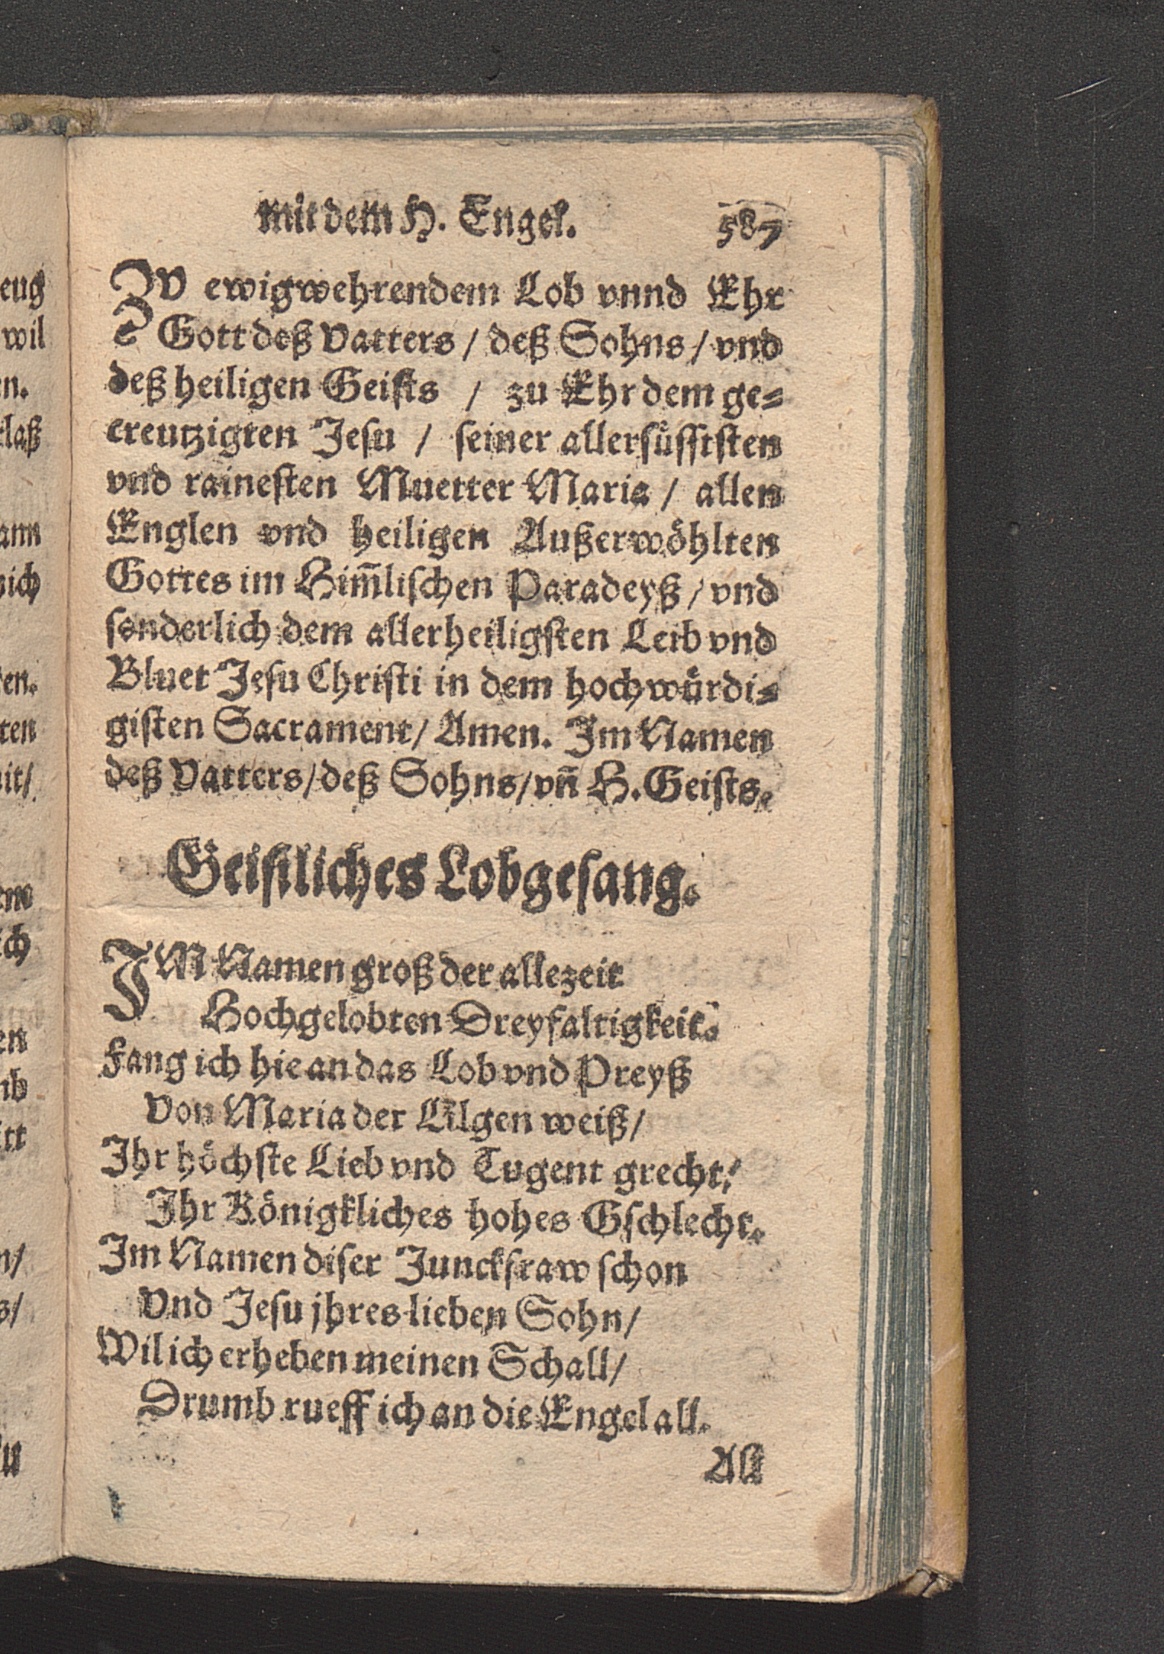 mit dem H. Engel. 587
ZV ewigwehrendem Lob vnnd Ehr
Gott deß Vatters / deß Sohns / vnd
deß heiligen Geists / zu Ehr dem ge⸗
creutzigten Jesu / seiner allersüsstsen
vnd rainesten Muetter Maria / allen
Englen vnd heiligen Außerwöhlten
Gottes im Him̄lischen Paradeyß / vnd
sonderlich dem allerheiligsten Leib vnd
Bluet Jesu Christi in dem hochwürdi⸗
gisten Sacrament / Amen. Im Namen
deß Vatters / deß Sohns / vn̄ H. Geists.
Geistliches Lobgesang.
IM Namen groß der allezeit
Hochgelobten Dreyfaltigkeit.
Fang ich hie an das Lob vnd Preyß
Von Maria der Lilgen weiß /
Ihr höchste Lieb vnd Tugent grecht /
Ihr Königkliches hohes Gschlecht.
Im Namen diser Junckfraw schon
Vnd Jesu jhres lieben Sohn /
Wil ich erheben meinen Schall /
Drumb rueff ich an die Engel all.
All
eug
wil
en.
laß
ann
ich
en.
ten
it /
ich
en
itt